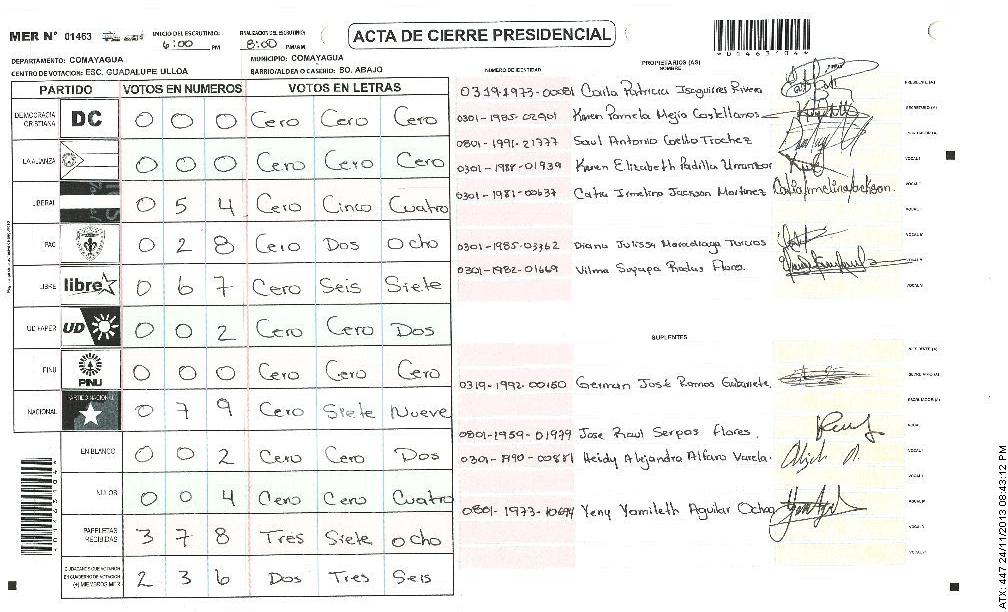 MER N° 01463
INICIO DEL ESCRUTINIO: 6:00 PM
FINALIZACION DEL ESCRUTINIO: 8:00 PM/AM
ACTA DE CIERRE PRESIDENCIAL
*01463*04*
DEPARTAMENTO: COMAYAGUA
MUNICIPIO: COMAYAGUA
CENTRO DE VOTACION: ESC. GUADALUPE ULLOA
BARRIO/ALDEA O CASERIO: BO. ABAJO
PARTIDO VOTOS EN NUMEROS VOTOS EN LETRAS
DEMOCRACIA CRISTIANA DC 0 0 0 Cero Cero Cero
LA ALIANZA 0 0 0 Cero Cero Cero
LIBERAL 0 5 4 Cero Cinco Cuatro
PAC 0 2 8 Cero Dos Ocho
LIBRE libre 0 6 7 Cero Seis Siete
UD FAPER UD 0 0 2 Cero Cero Dos
PINU PINU 0 0 0 Cero Cero Cero
NACIONAL PARTIDO NACIONAL 0 7 9 Cero Siete Nueve
EN BLANCO 0 0 2 Cero Cero Dos
NULOS 0 0 4 Cero Cero Cuatro
PAPELETAS RECIBIDAS 3 7 8 Tres Siete Ocho
CIUDADANOS QUE VOTARON EN CUADERNO DE VOTACION (+) MIEMBROS MER 2 3 6 Dos Tres Seis
PROPIETARIOS (AS)
NUMERO DE IDENTIDAD NOMBRE FIRMA
Carla Patricia Isaguirres Rivera PRESIDENTE (A)
0301-1985-02901 Karen Pamela Mejia Castellanos SECRETARIO (A)
0801-1991-21777 Saul Antonio Coello Trochez ESCRUTADOR (A)
0301-1988-01939 Karen Elizabeth Padilla VOCAL I
0301-1981-00637 Catia Irmelina Jackson Martinez Catia Irmelina Jackson. VOCAL II
0301-1985-03362 Diana Julissa Maradiaga
0301-1982-01669 Vilma Suyapa Rodas Flores.
SUPLENTES
PRESIDENTE (A)
0319-1992-00160 German José Ramos SECRETARIO (A)
ESCRUTADOR (A)
0801-1959-01979 Jose Raul Serpas Flores. VOCAL I
Heidy Alejandra Alfaro Varela.
Yeny Yamileth Aguilar Ochoa
ATX: 447 24/11/2013 08:43:12 PM